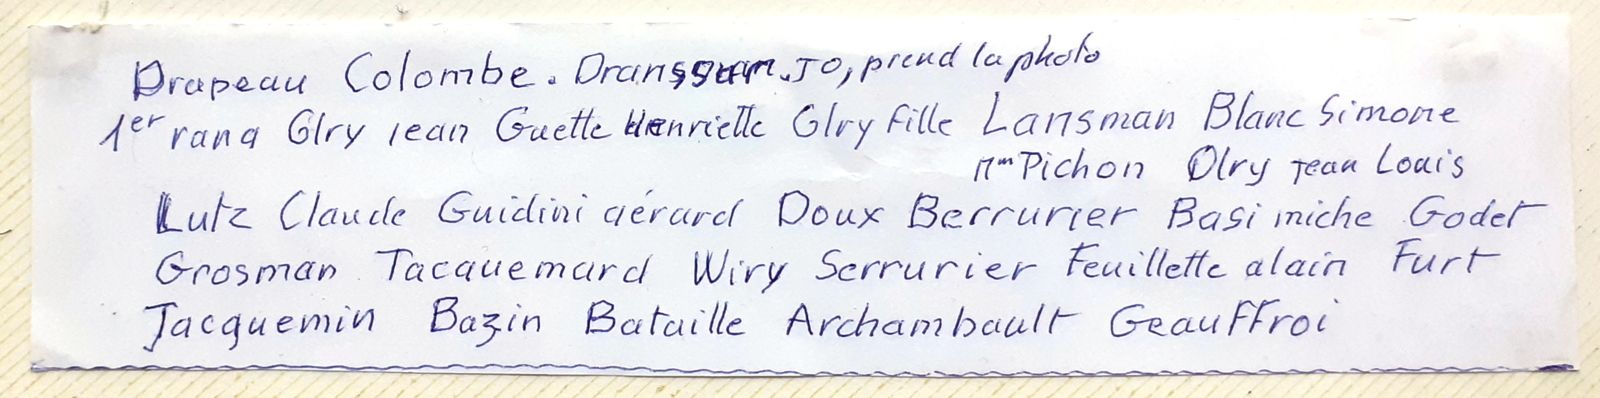 Drapeau Colombe. Dranssuram. JO, prend la photo
1er rang Olry jean Guette Henriette Olry fille Lansman Blanc Simone
Mm Pichon Olry jean Louis
Lutz Claude Guidini gérard Doux Berrurier Basi miche Godet
Grosman Tacquemard Wiry Serrurier Feuillette alain Furt
Jacquemin Bazin Bataille Archambault Geauffroi